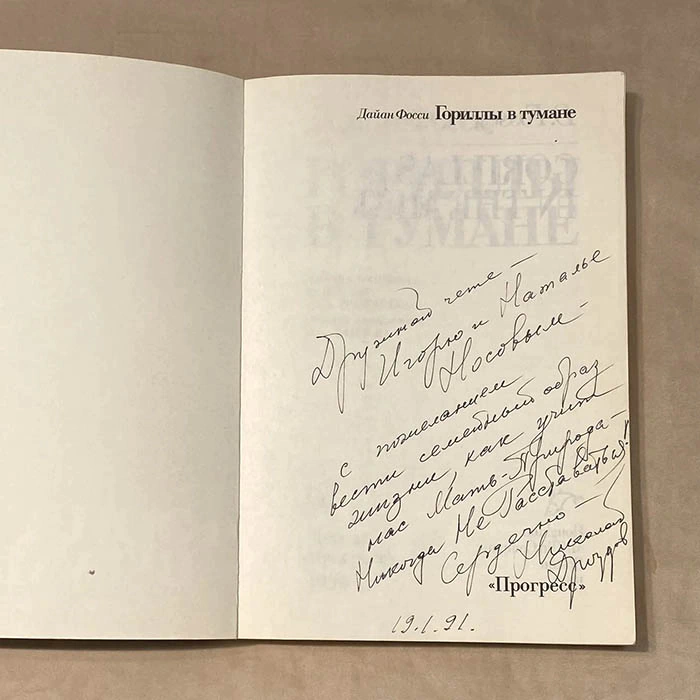 Дайан Фосси Гориллы в тумане
Дружной чете —
Игорю и Наталье
Носовым —
с пожеланием
вести семейный образ
жизни, как учит
нас Мать-Природа —
Никогда Не Расставаться!
Сердечно — Николай
Дроздов
«Прогресс»
19.1.91.